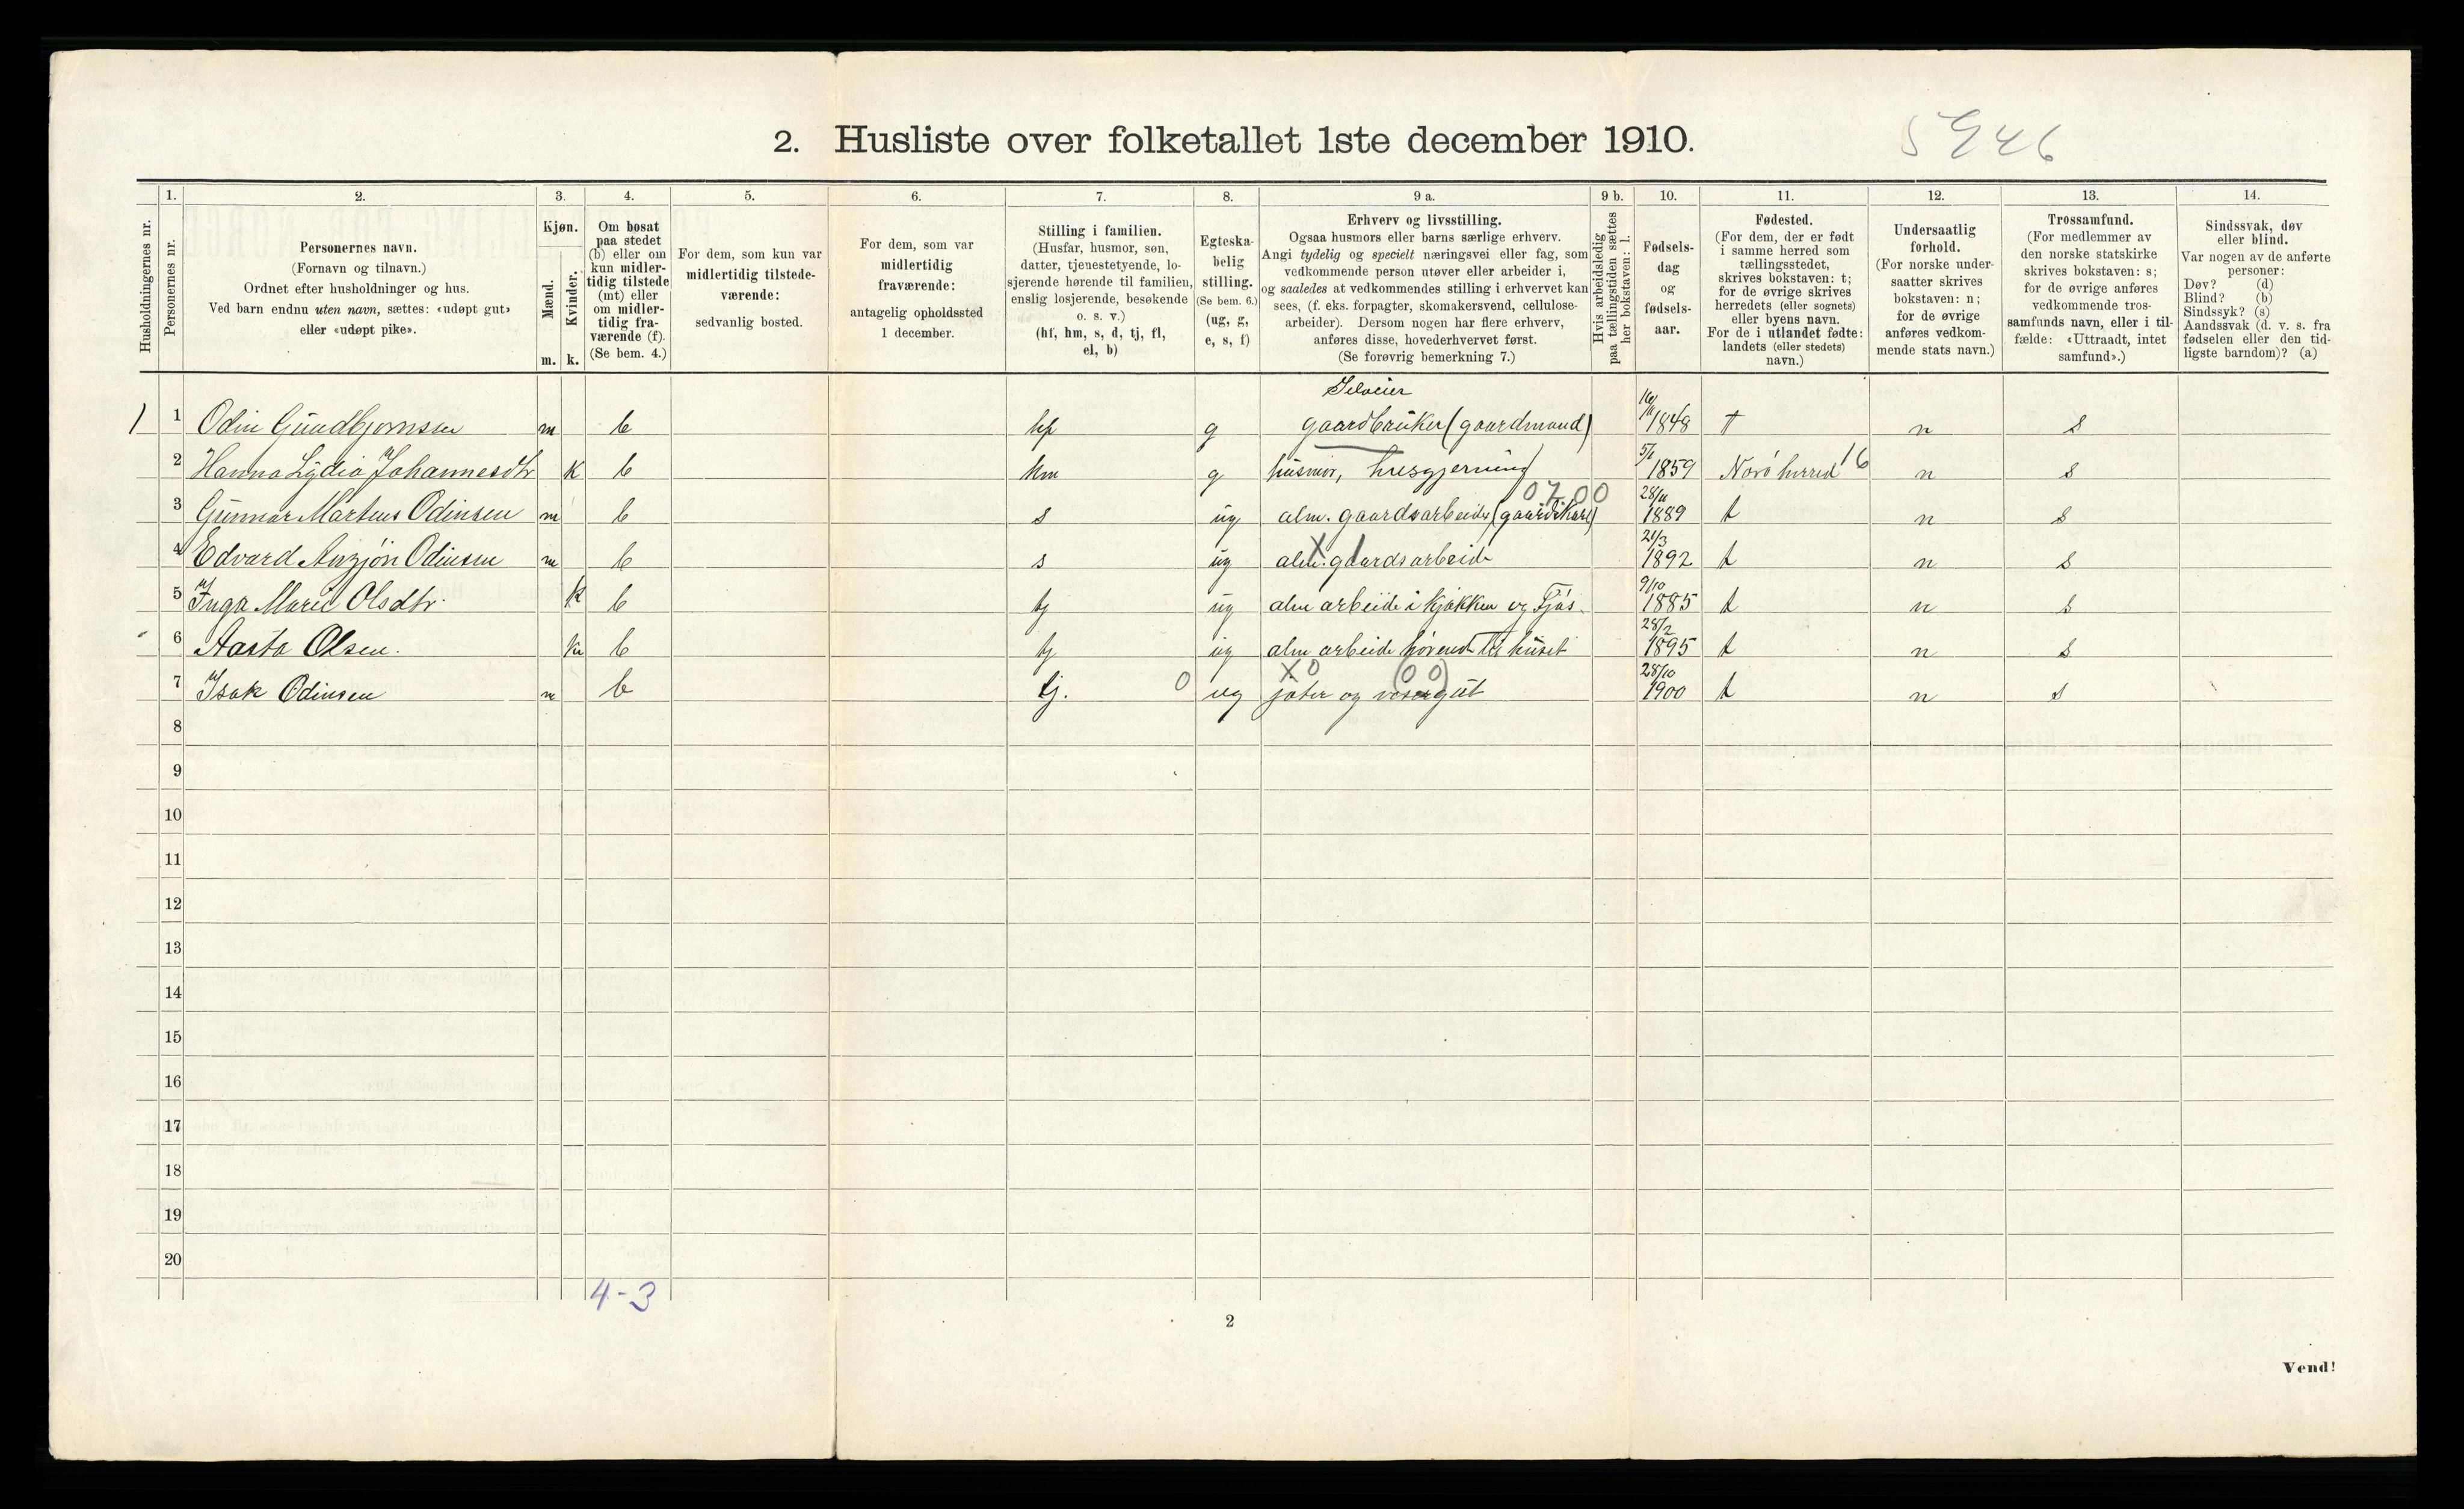 2. Husliste over folketallet 1ste december 1910.
5946
Husholdningernes nr.
1.
Personernes nr.
2.
Personernes navn.
(Fornavn og tilnavn.)
Ordnet efter husholdninger og hus.
Ved barn endnu uten navn, sættes: «udøpt gut»
eller «udøpt pike».
3.
Kjøn.
Mænd.
Kvinder.
m. k.
4.
Om bosat
paa stedet
(b) eller om
kun midler-
tidig tilstede
(mt) eller
om midler-
tidig fra-
værende (f).
(Se bem. 4.)
5.
For dem, som kun var
midlertidig tilstede-
værende:
sedvanlig bosted.
6.
For dem, som var
midlertidig
fraværende:
antagelig opholdssted
1 december.
7.
Stilling i familien.
(Husfar, husmor, søn,
datter, tjenestetyende, lo-
sjerende hørende til familien,
enslig losjerende, besøkende
o. s. v.)
(hf, hm, s, d, tj, fl,
el, b)
8.
Egteska-
belig
stilling.
(Se bem. 6.)
(ug, g,
e, s, f)
9 a.
Erhverv og livsstilling.
Ogsaa husmors eller barns særlige erhverv.
Angi tydelig og specielt næringsvei eller fag, som
vedkommende person utøver eller arbeider i,
og saaledes at vedkommendes stilling i erhvervet kan
sees, (f. eks. forpagter, skomakersvend, cellulose-
arbeider). Dersom nogen har flere erhverv,
anføres disse, hovederhvervet først.
(Se forøvrig bemerkning 7.)
9 b.
Hvis arbeidsledig
paa tællingstiden sættes
her bokstaven: l.
10.
Fødsels-
dag
og
fødsels-
aar.
11.
Fødested.
(For dem, der er født
i samme herred som
tællingsstedet,
skrives bokstaven: t;
for de øvrige skrives
herredets (eller sognets)
eller byens navn.
For de i utlandet fødte:
landets (eller stedets)
navn.)
12.
Undersaatlig
forhold.
(For norske under-
saatter skrives
bokstaven: n;
for de øvrige
anføres vedkom-
mende stats navn.)
13.
Trossamfund.
(For medlemmer av
den norske statskirke
skrives bokstaven: s;
for de øvrige anføres
vedkommende tros-
samfunds navn, eller i til-
fælde: «Uttraadt, intet
samfund».)
14.
Sindssvak, døv
eller blind.
Var nogen av de anførte
personer:
Døv? (d)
Blind? (b)
Sindssyk? (s)
Aandssvak (d. v. s. fra
fødselen eller den tid-
ligste barndom)? (a)
Selveier
1 1 Odin Gundbjørnsen m b hf g gaardbruker (gaardmand) 1848 t n s
2 Hanna Lydia Johannesdtr k b hm g husmor, husgjerning 5/1 1859 Nærö herred 16 n s
0700
3 Gunnar Martens Odinsen m b s ug alm. gaardsarbeide (gaardskarl) 28/11 1889 t n s
4 Edvard Odinsen m b s ug alm. gaardsarbeide 21/3 1892 t n s
5 Inga Marie Olsdtr. k b tj ug alm arbeide i kjøkken og Fjøs 9/10 1885 t n s
6 Aasta Olsen. k b tj ug alm arbeide hørende til huset 28/2 1895 t n s
X0 (00)
7 Isak Odinsen m b tj. 0 ug jæter og visergut 28/10 1900 t n s
8
9
10
11
12
13
14
15
16
17
18
19
20
4-3
2
Vend!